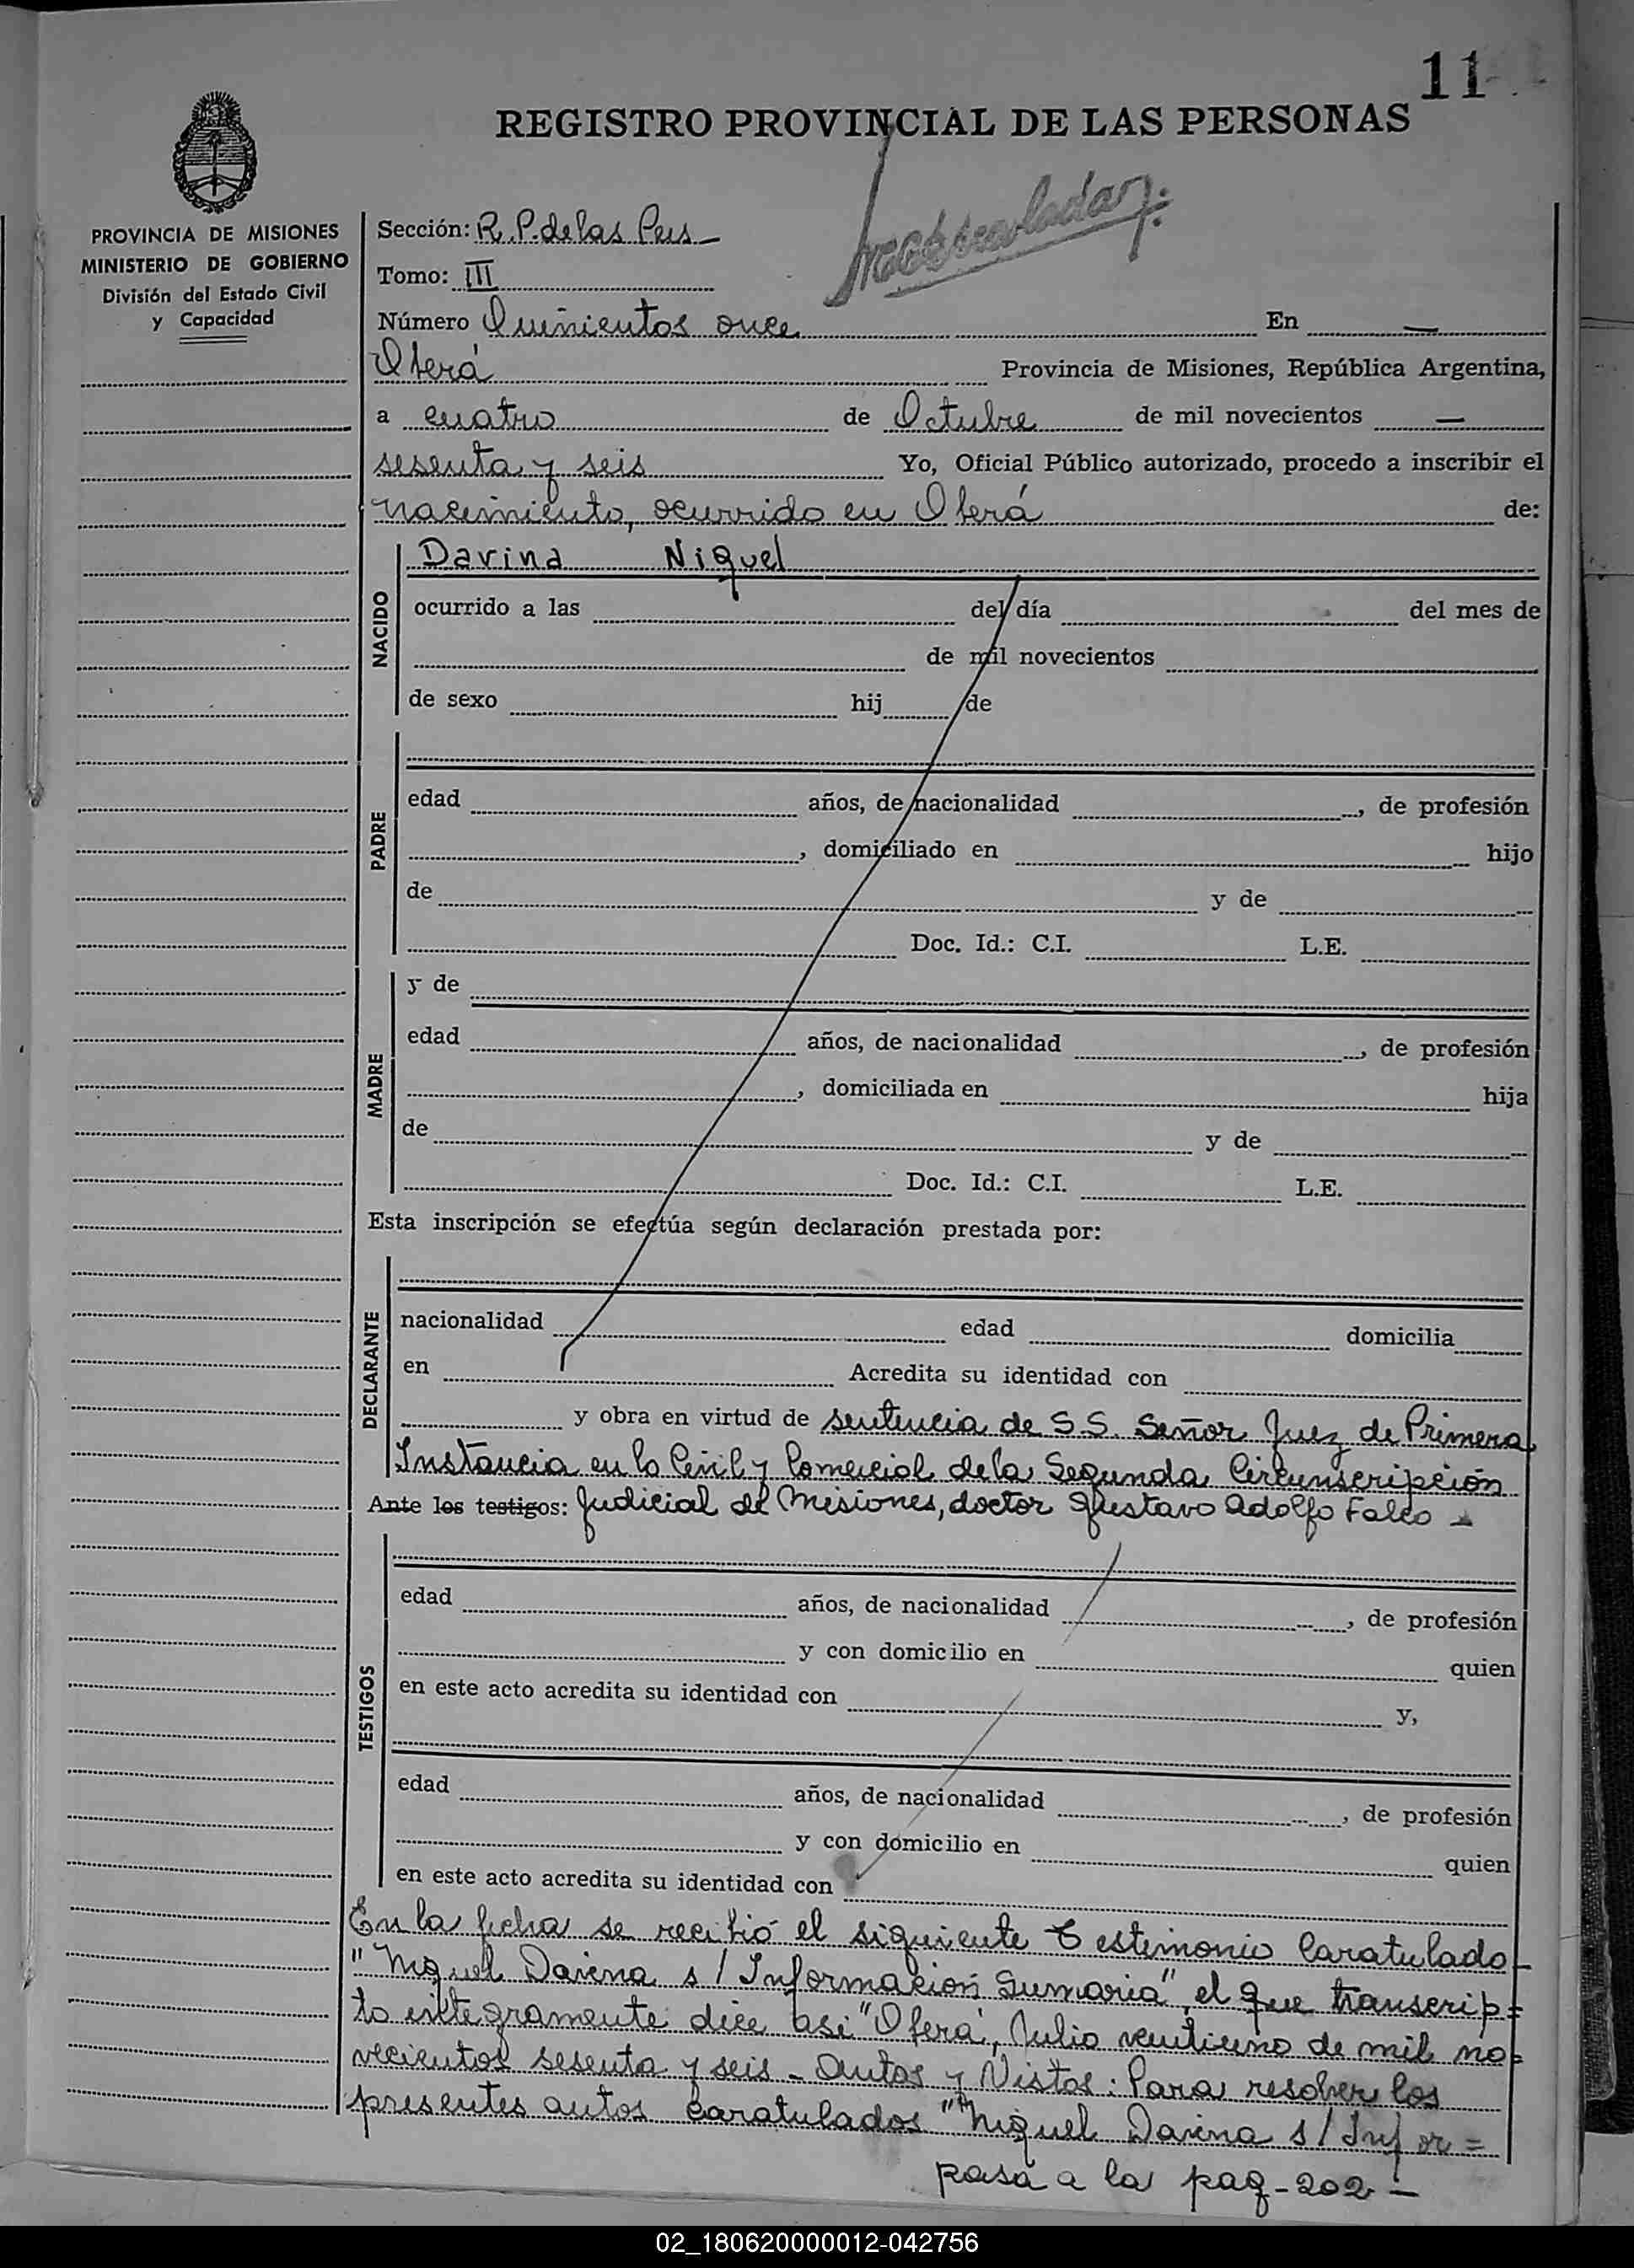 11
REGISTRO PROVINCIAL DE LAS PERSONAS
PROVINCIA DE MISIONES
MINISTERIO DE GOBIERNO
División del Estado Civil
y Capacidad
Sección: R. P. de las Pers
Tomo: III
Número Quinientos once En —
Oberá Provincia de Misiones, República Argentina,
a cuatro de Octubre de mil novecientos —
sesenta y seis Yo, Oficial Público autorizado, procedo a inscribir el
nacimiento, ocurrido en Oberá de:
NACIDO
Darina Niquel
ocurrido a las del día del mes de
de mil novecientos
de sexo hij de
PADRE
edad años, de nacionalidad , de profesión
, domiciliado en hijo
de y de
Doc. Id.: C.I. L.E.
MADRE
y de
edad años, de nacionalidad , de profesión
, domiciliada en hija
de y de
Doc. Id.: C.I. L.E.
Esta inscripción se efectúa según declaración prestada por:
DECLARANTE
nacionalidad edad domicilia
en Acredita su identidad con
y obra en virtud de sentencia de S.S. Señor Juez de Primera
Instancia en lo Civil y Comercial de la Segunda Circunscripción
Ante los testigos: Judicial de Misiones, doctor Gustavo Adolfo Falco
TESTIGOS
edad años, de nacionalidad , de profesión
y con domicilio en quien
en este acto acredita su identidad con y,
edad años, de nacionalidad , de profesión
y con domicilio en quien
en este acto acredita su identidad con
En la fecha se recibió el siguiente Testimonio Caratulado
"Niquel Darina s/ Informacion Sumaria" el que transcrip=
to integramente dice asi "Oberá, Julio veintiuno de mil no=
vecientos sesenta y seis - Autos y Vistos: Para resolver los
presentes autos caratulados "Niquel Darina s/ Infor=
pasa a la pag-202-
02_180620000012-042756